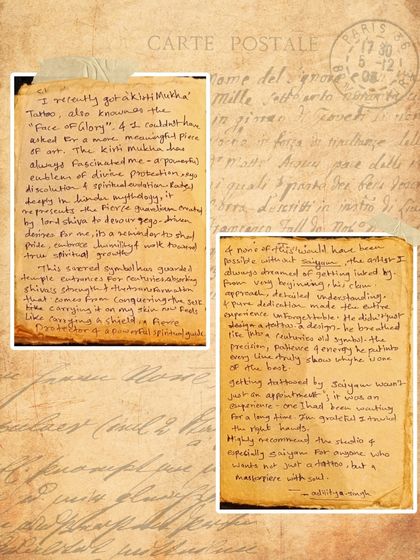 CARTE POSTALE
PARIS
17 30
5 -12
I recently got a Kirti Mukha
Tattoo, also known as the
"Face of Glory", & I couldn't have
asked for a more meaningful piece
of art. The kirti Mukha has
always fascinated me - a powerful
emblem of divine protection, ego
discolution & spiritual evolution. Rooted
deeply in hindu mythology, it
represents the fierce guardian created
by lord shiva to devour ego-driven
desires. For me, its a reminder to shed
pride, embrace humility & walk toward
true spiritual growth
This sacred symbol has guarded
temple entrances for centuries, absorbing
shiva's strength & the transformation
that comes from conquering the self
carrying it on my skin now feels
like carrying a shield, a fierce
Protector & a powerful spiritual guide
& none of this would have been
possible without saiyam, the artist I
always dreamed of getting inked by
from very beginning, his clean
approach, detailed understanding,
& pure dedication made the entire
experience unforgettable. He didn't just
design a tattoo a design - he breathed
life into a centuries old symbol. the
precision, patience & energy he put into
every line truly show why he is one
of the best.
getting tattooed by saiyam wasn't
just an appointment; it was an
experience - one I had been waiting
for a long time. I'm grateful I trusted
the right hands.
Highly recommend the studio &
especially saiyam for anyone who
wants not just a tattoo, but a
masterpiece with soul.
- aditya singh